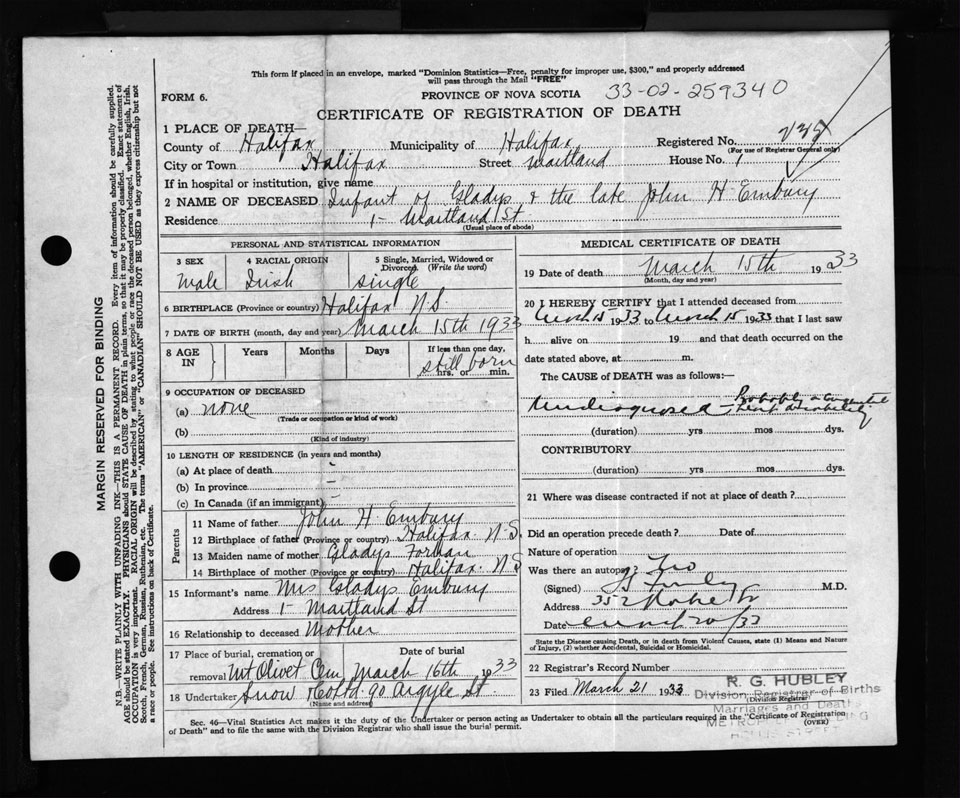 This form if placed in an envelope, marked "Dominion Statistics—Free, penalty for improper use, $300," and properly addressed
will pass through the Mail "FREE"
FORM 6.
PROVINCE OF NOVA SCOTIA
33-02-259340
CERTIFICATE OF REGISTRATION OF DEATH
1 PLACE OF DEATH—
Registered No.
(For use of Registrar General only)
County of Halifax Municipality of Halifax
City or Town Halifax Street Maitland House No. 1
If in hospital or institution, give name
2 NAME OF DECEASED Infant of Gladys & the late John H Embury
Residence 1- Maitland St
(Usual place of abode)
PERSONAL AND STATISTICAL INFORMATION
3 SEX 4 RACIAL ORIGIN 5 Single, Married, Widowed or
Divorced (Write the word)
Male Irish single
6 BIRTHPLACE (Province or country) Halifax N.S.
7 DATE OF BIRTH (month, day and year) March 15th 1933
8 AGE IN Years Months Days If less than one day,
still born
hrs. or min.
9 OCCUPATION OF DECEASED
(a) none
(Trade or occupation or kind of work)
(b)
(Kind of industry)
10 LENGTH OF RESIDENCE (in years and months)
(a) At place of death -
(b) In province -
(c) In Canada (if an immigrant) -
Parents
11 Name of father John H Embury
12 Birthplace of father (Province or country) Halifax N.S.
13 Maiden name of mother Gladys
14 Birthplace of mother (Province or country) Halifax. N S
15 Informant's name Mrs Gladys Embury
Address 1- Maitland St
16 Relationship to deceased Mother
17 Place of burial, cremation or Date of burial
removal Mt Olivet Cem March 16th 1933
18 Undertaker Snow & Co Ltd 90 Argyle St
(Name and address)
MEDICAL CERTIFICATE OF DEATH
19 Date of death March 15th 1933
(Month, day and year)
20 I HEREBY CERTIFY that I attended deceased from
March 15 1933 to March 15 1933 that I last saw
h alive on 19 and that death occurred on the
date stated above, at m.
The CAUSE of DEATH was as follows:
Undiagnosed - Probably a Congenital
heart
(duration) yrs mos dys.
CONTRIBUTORY
(duration) yrs mos dys.
21 Where was disease contracted if not at place of death?
Did an operation precede death? Date of
Nature of operation
Was there an autopsy? No
(Signed) M.D.
Address
Date
State the Disease causing Death, or in death from Violent Causes, state (1) Means and Nature
of Injury, (2) whether Accidental, Suicidal or Homicidal.
22 Registrar's Record Number
23 Filed March 21 1933
(Division Registrar)
R. G. HUBLEY
Division Registrar of Births
Marriages and Deaths
Sec. 46—Vital Statistics Act makes it the duty of the Undertaker or person acting as Undertaker to obtain all the particulars required in the "Certificate of Registration
of Death" and to file the same with the Division Registrar who shall issue the burial permit.
(OVER)
MARGIN RESERVED FOR BINDING
N.B.—WRITE PLAINLY WITH UNFADING INK—THIS IS A PERMANENT RECORD. Every item of information should be carefully supplied.
AGE should be stated EXACTLY. PHYSICIANS should STATE CAUSE OF DEATH in plain terms, so that it may be properly classified. Exact statement of
OCCUPATION is very important. RACIAL ORIGIN will be described by stating to what people or race the deceased person belonged, whether English, Irish,
Scotch, French, German, Russian, Ruthenian, etc. The terms "AMERICAN" or "CANADIAN" SHOULD NOT BE USED as they express citizenship but not
a race or people. See instructions on back of Certificate.